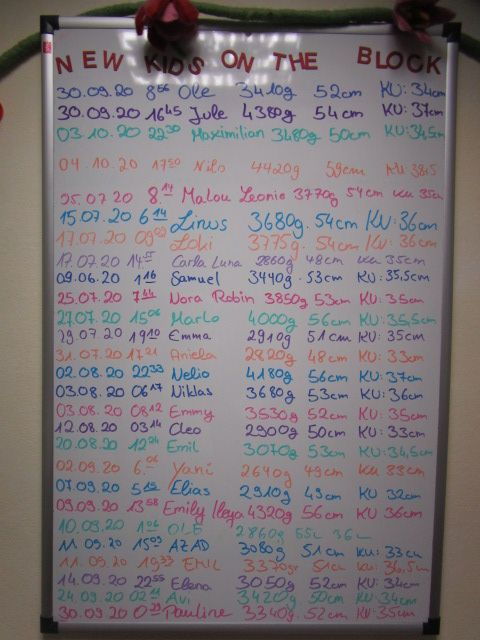 NEW KIDS ON THE BLOCK
30.09.20 8⁵⁶ Ole 3410g 52cm KU: 34cm
30.09.20 16⁴⁵ Jule 4380g 54cm KU: 37cm
03.10.20 22³⁰ Maximilian 3480g 50cm KU: 34,5m
04.10.20 17²⁰ Nils 4420g 59cm KU 38,5
25.07.20 8.¹⁴ Malou Leonie 3770g 54cm KU 35cm
15.07.20 6¹⁴ Linus 3680g. 54cm KU: 36cm
17.07.20 Loki 3775g. 54cm KU: 36cm
17.07.20 14⁵⁵ Carla Luna 2860g 48cm KU 35cm
09.06.20 1¹⁶ Samuel 3440g. 53cm KU: 35,5cm
25.07.20 7⁴⁴ Nora Robin 3850g 53cm KU: 35cm
27.07.20 15⁰⁶ Marlo 4000g 56cm KU: 35,5cm
29.07.20 19¹⁰ Emma 2910g 51cm KU: 35cm
31.07.20 17²¹ Aniela 2820g 48cm KU: 33cm
02.08.20 22³³ Nelio 4180g 56cm KU: 37cm
03.08.20 06¹⁷ Niklas 3680g 53cm KU: 36cm
03.08.20 08¹² Emmy 3530g 52cm KU: 35cm
12.08.20 03¹⁴ Cleo 2900g 50cm KU: 33cm
20.08.20 12²⁴ Emil 3070g 53cm KU: 34,5cm
02.09.20 6.⁰⁶ Yani 2640g 49cm KU 33cm
07.09.20 5¹² Elias 2910g 49cm KU 32cm
09.09.20 13⁵⁸ Emily 4320g 56cm KU 36cm
10.09.20 1⁰⁶ OLE 2860g 55c 36c
11.09.20 15⁰³ AZAD 3080g 51cm KU: 33cm
11.09.20 19³³ EMIL 3370gr 51cm KU: 36,5cm
14.09.20 22⁵⁵ Elena 3050g 52cm KU: 34cm
24.09.20 02¹¹ Avi 3420g 50cm KU: 34cm
30.09.20 0³⁹ Pauline 3340g. 52cm KU: 35cm